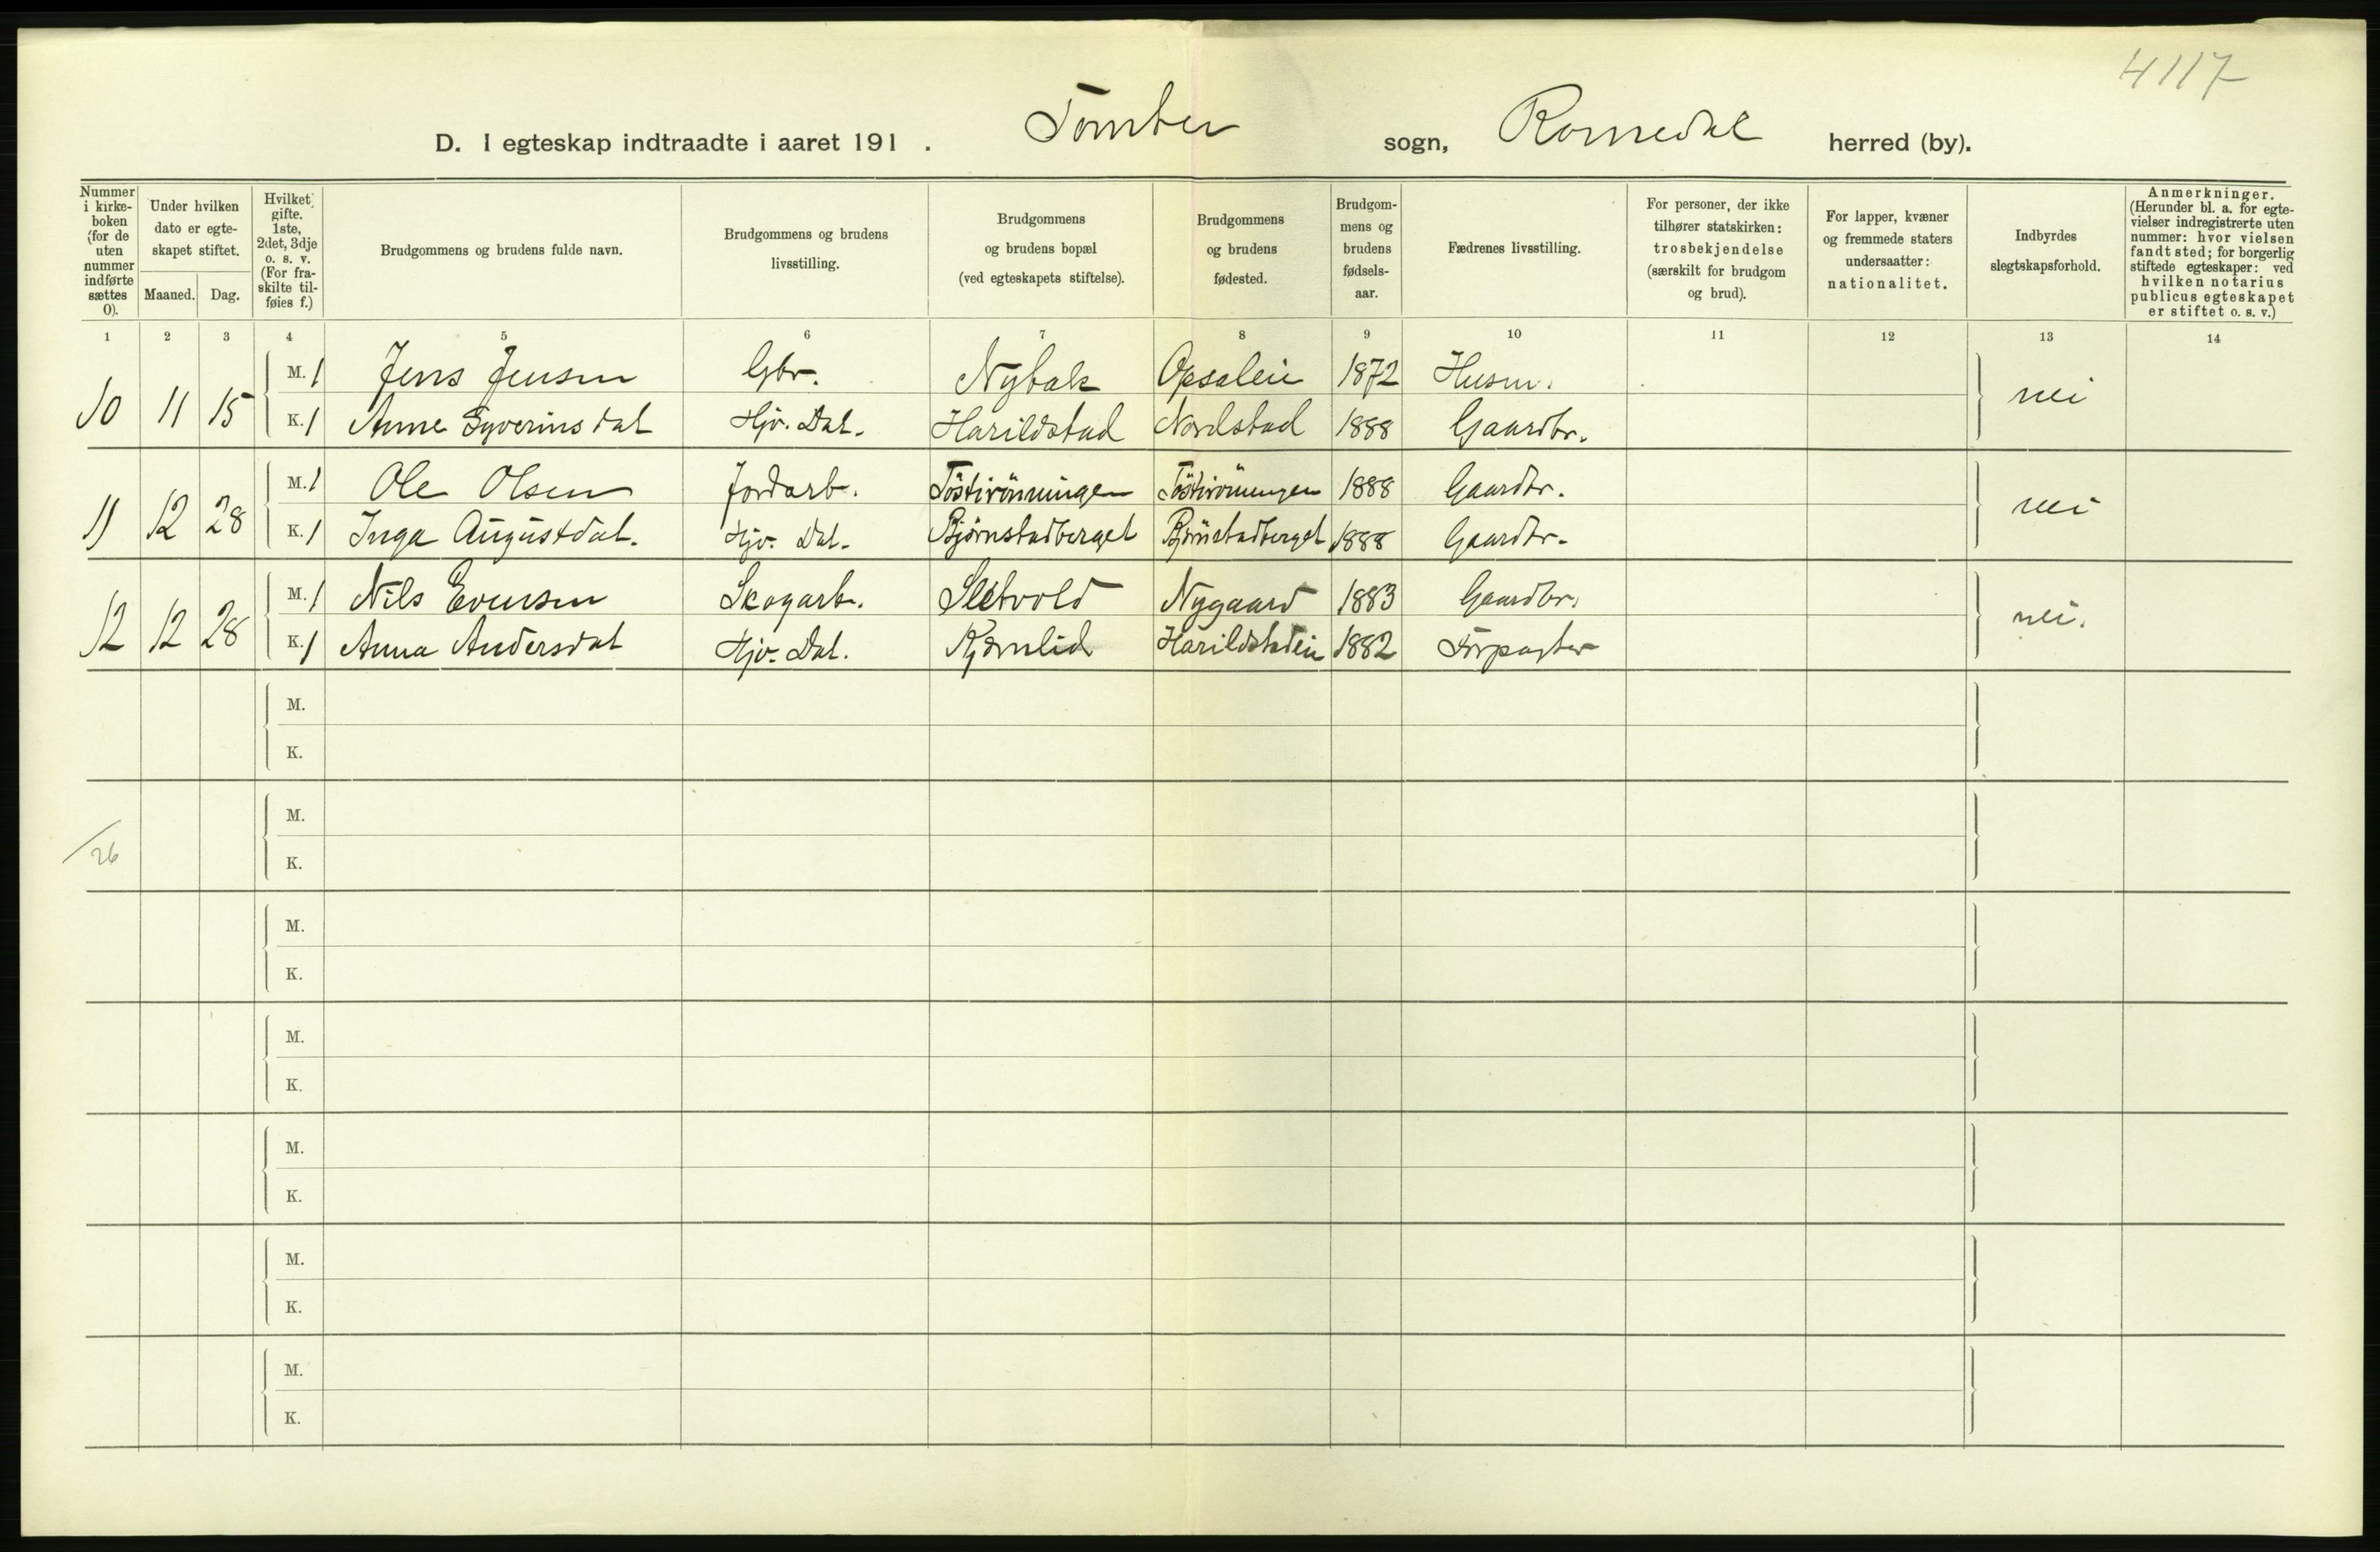 4117
D. I egteskap indtraadte i aaret 191 . Tomter sogn, Romedal herred (by).
Nummer i kirke-boken (for de uten nummer indførte sættes 0).
Under hvilken dato er egte-skapet stiftet.
Maaned. Dag.
Hvilket gifte. 1ste, 2det, 3dje o. s. v. (For fra-skilte til-føies f.)
Brudgommens og brudens fulde navn.
Brudgommens og brudens livsstilling.
Brudgommens og brudens bopæl (ved egteskapets stiftelse).
Brudgommens og brudens fødested.
Brudgom-mens og brudens fødsels-aar.
Fædrenes livsstilling.
For personer, der ikke tilhører statskirken: trosbekjendelse (særskilt for brudgom og brud).
For lapper, kvæner og fremmede staters undersaatter: nationalitet.
Indbyrdes slegtskapsforhold.
Anmerkninger. (Herunder bl. a. for egte-vielser indregistrerte uten nummer: hvor vielsen fandt sted; for borgerlig stiftede egteskaper: ved hvilken notarius publicus egteskapet er stiftet o. s. v.)
1 2 3 4 5 6 7 8 9 10 11 12 13 14
M. 1 Jens Jensen Gbr. Nybak Opsaleie 1872 Husm.
10 11 15 nei
K. 1 Anne Syverinsdat Hjv. Dat. Harildstad Nordstad 1888 Gaardbr.
M. 1 Ole Olsen Jordarb. Töstirönningen Töstirönningen 1888 Gaardbr.
11 12 28 nei
K. 1 Inga Augustdat. Hjv. Dat. Bjørnstadberget Bjørnstadberget 1888 Gaardbr.
M. 1 Nils Evensen Skogarb. Sletvold Nygaard 1883 Gaardbr.
12 12 28 nei.
K. 1 Anna Andersdat Hjv. Dat. Kjernlid Harildstadeie 1882 Forpagter
M.
K.
M.
/26
K.
M.
K.
M.
K.
M.
K.
M.
K.
M.
K.